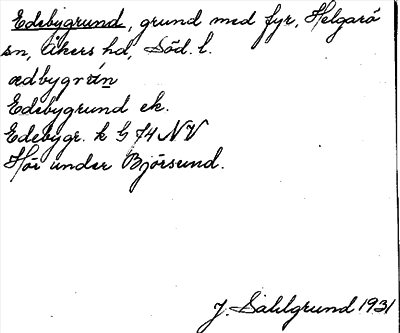 Edebygrund, grund med fyr, Helgarö
sn, Åkers hd, Söd. l.
ædbygrún
Edebygrund ek.
Edebygr. k G 74 NV
Hör under Björsund.
J. Sahlgrund 1931